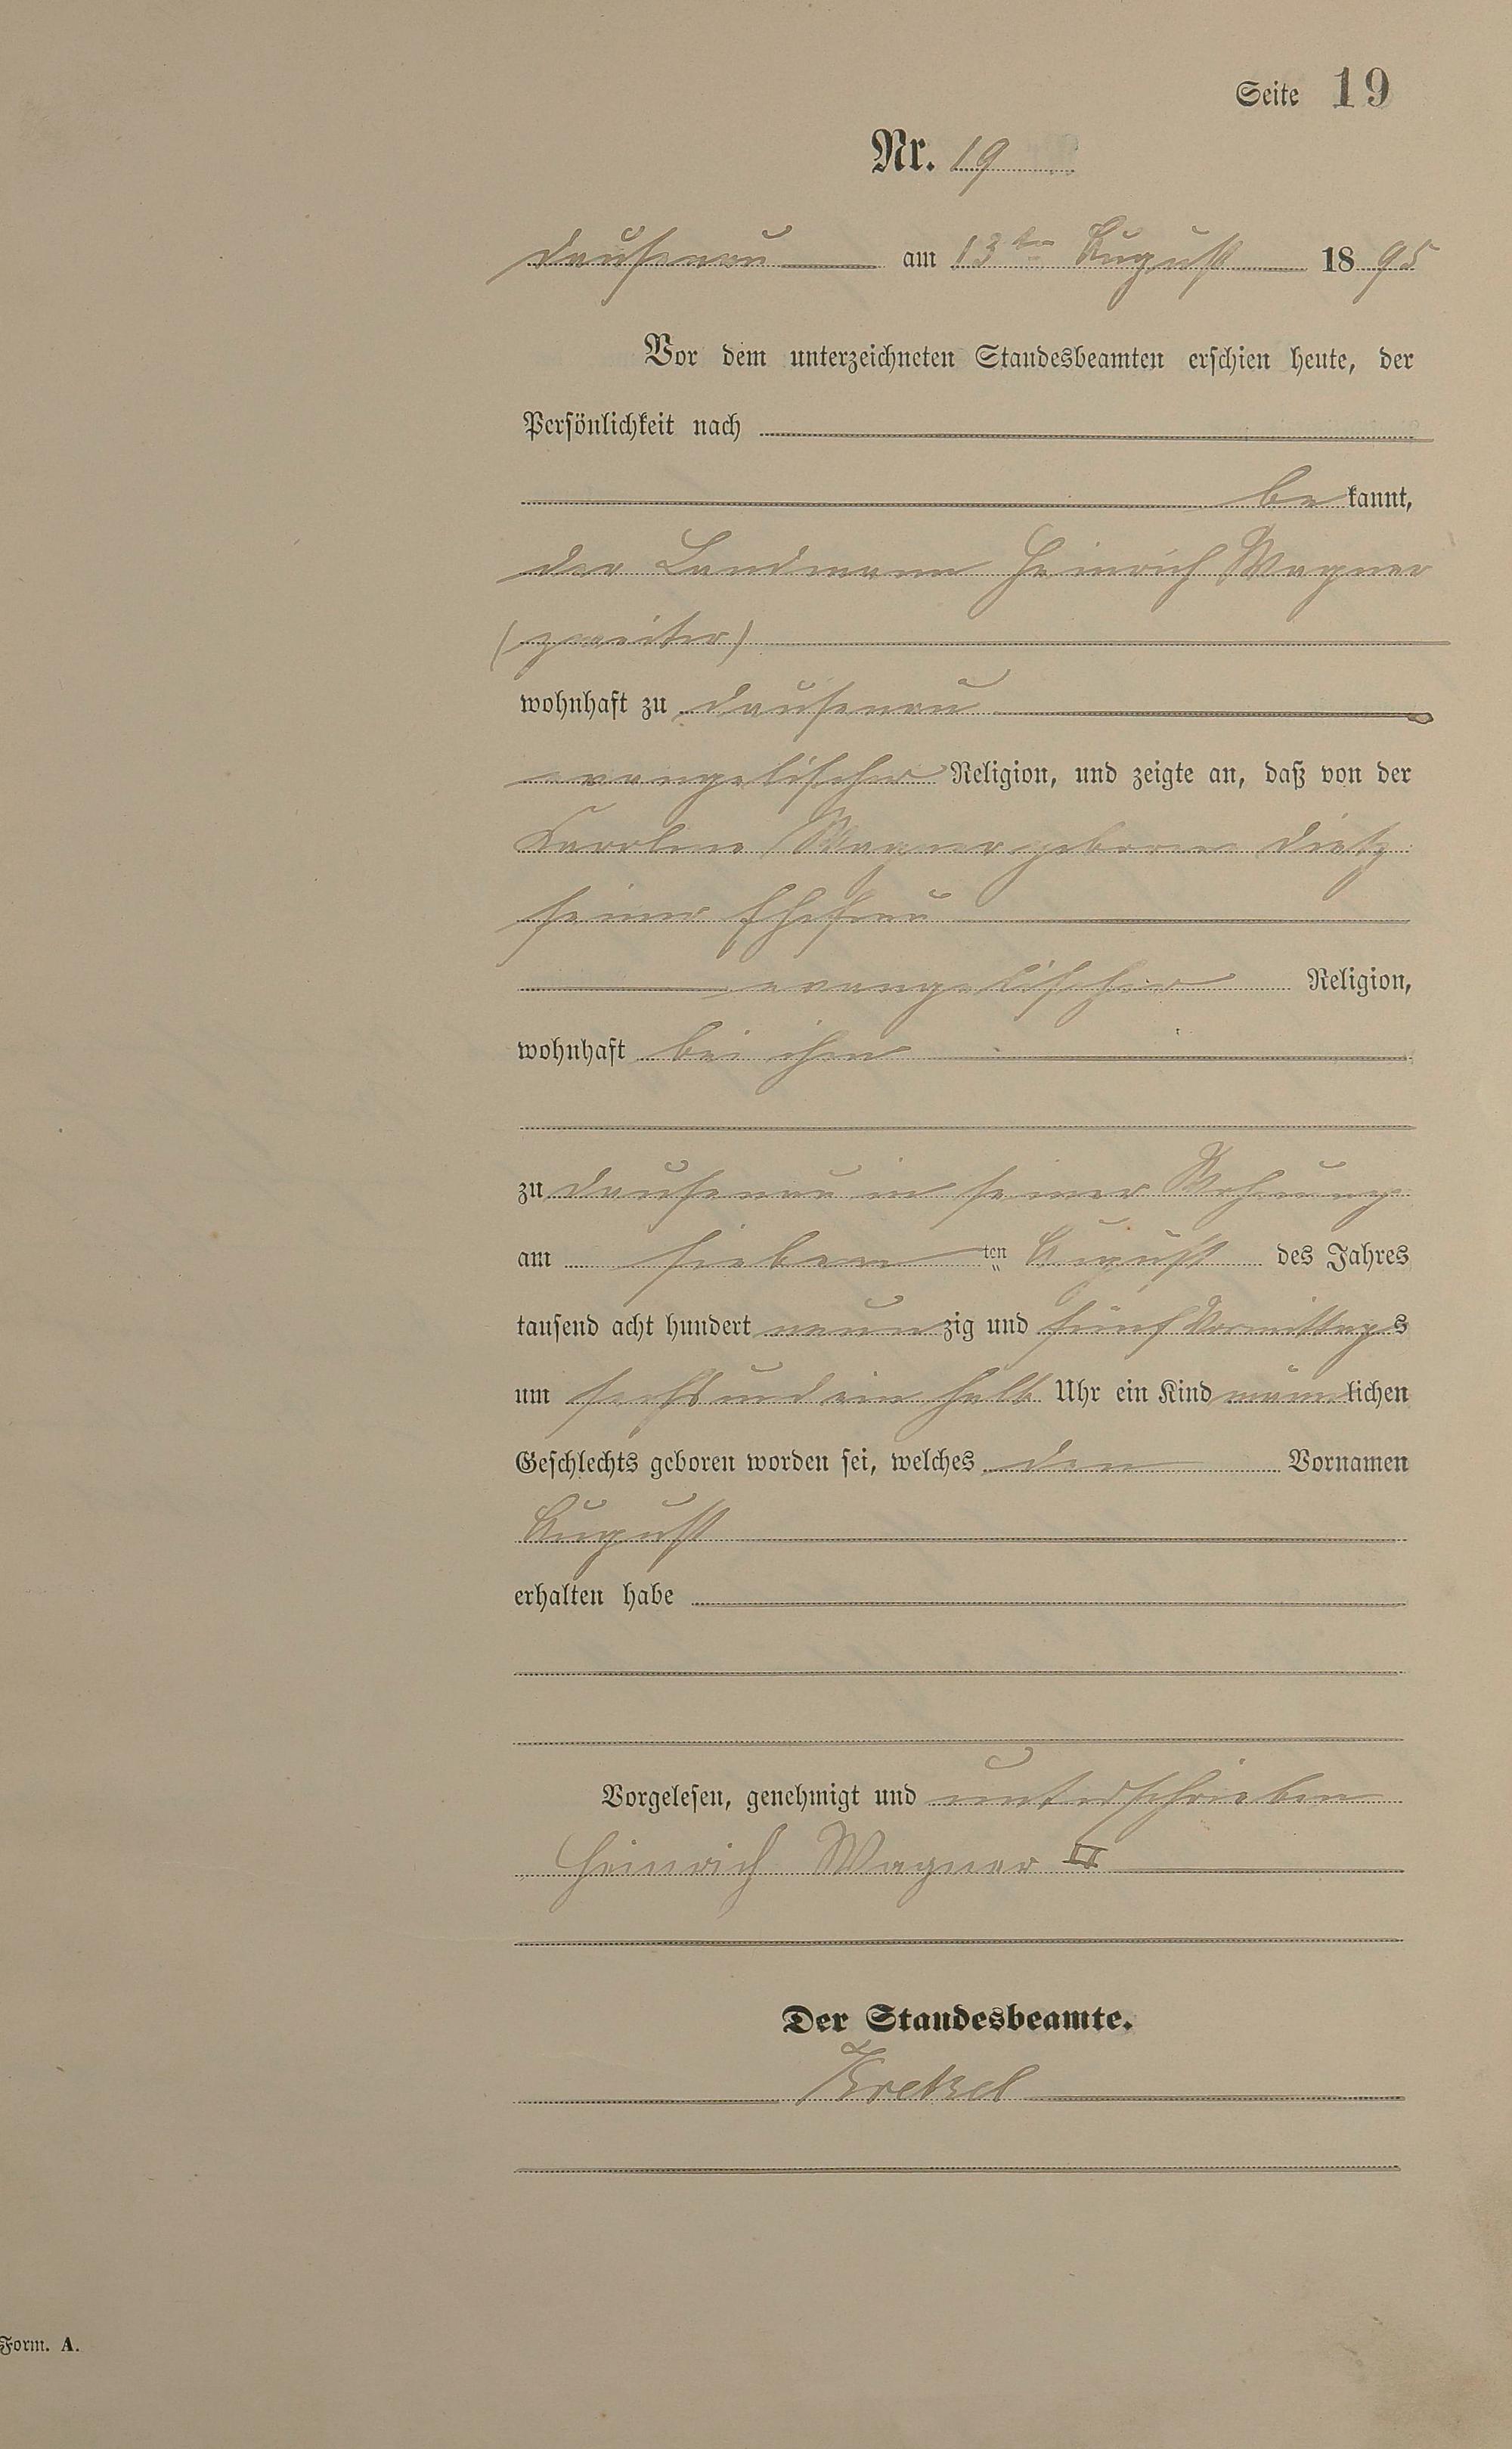 Seite 19
Nr. 19
Dausenau am 13ten August 1895
Vor dem unterzeichneten Standesbeamten erschien heute, der
Persönlichkeit nach
bekannt,
der Landmann Heinrich Wagner
(zweiter)
wohnhaft zu Dausenau
evangelischer Religion, und zeigte an, daß von der
Karoline Wagner geborene Dietz
seiner Ehefrau
evangelischer Religion,
wohnhaft bei ihm
zu Dausenau in seiner Wohnung
am sieben ten August des Jahres
tausend acht hundert neunzig und fünf Vormittags
um sechs und ein halb Uhr ein Kind männlichen
Geschlechts geboren worden sei, welches den Vornamen
August
erhalten habe
Vorgelesen, genehmigt und unterschrieben
Heinrich Wagner II
Der Standesbeamte.
Form. A.